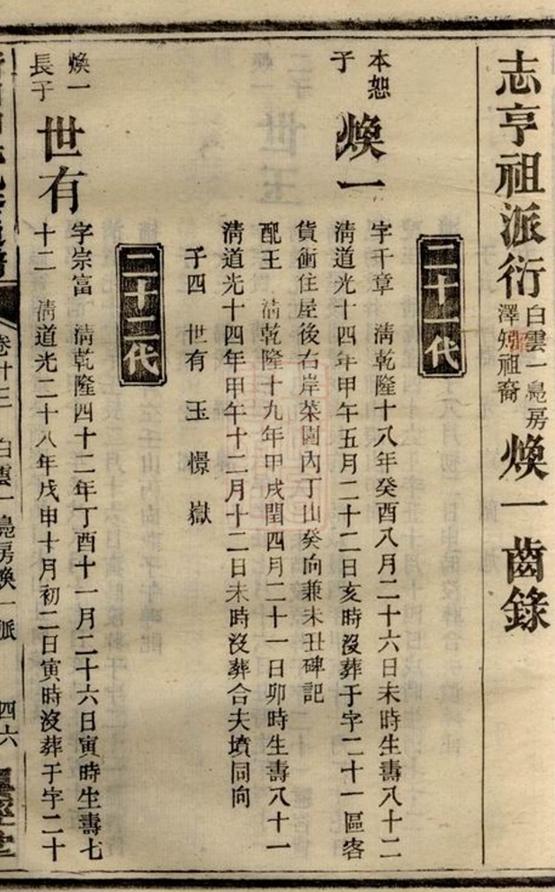 志亨祖派衍 白雲一鳧房澤知祖裔 煥一齒錄
二十一代
本恕子 煥一
字千章 清乾隆十八年癸酉八月二十六日未時生壽八十二
清道光十四年甲午五月二十二日亥時沒葬于字二十一區客
貨衝住屋後右岸菜園內丁山癸向兼未丑碑記
配王 清乾隆十九年甲戌閏四月二十一日卯時生壽八十一
清道光十四年甲午十二月十二日未時沒葬合夫墳同向
子四 世有 玉 憬 嶽
二十二代
煥一長子 世有
字宗富 清乾隆四十二年丁酉十一月二十六日寅時生壽七
十二 清道光二十八年戊申十月初二日寅時沒葬于字二十
卷廿三 白雲一鳧房煥一派 四六